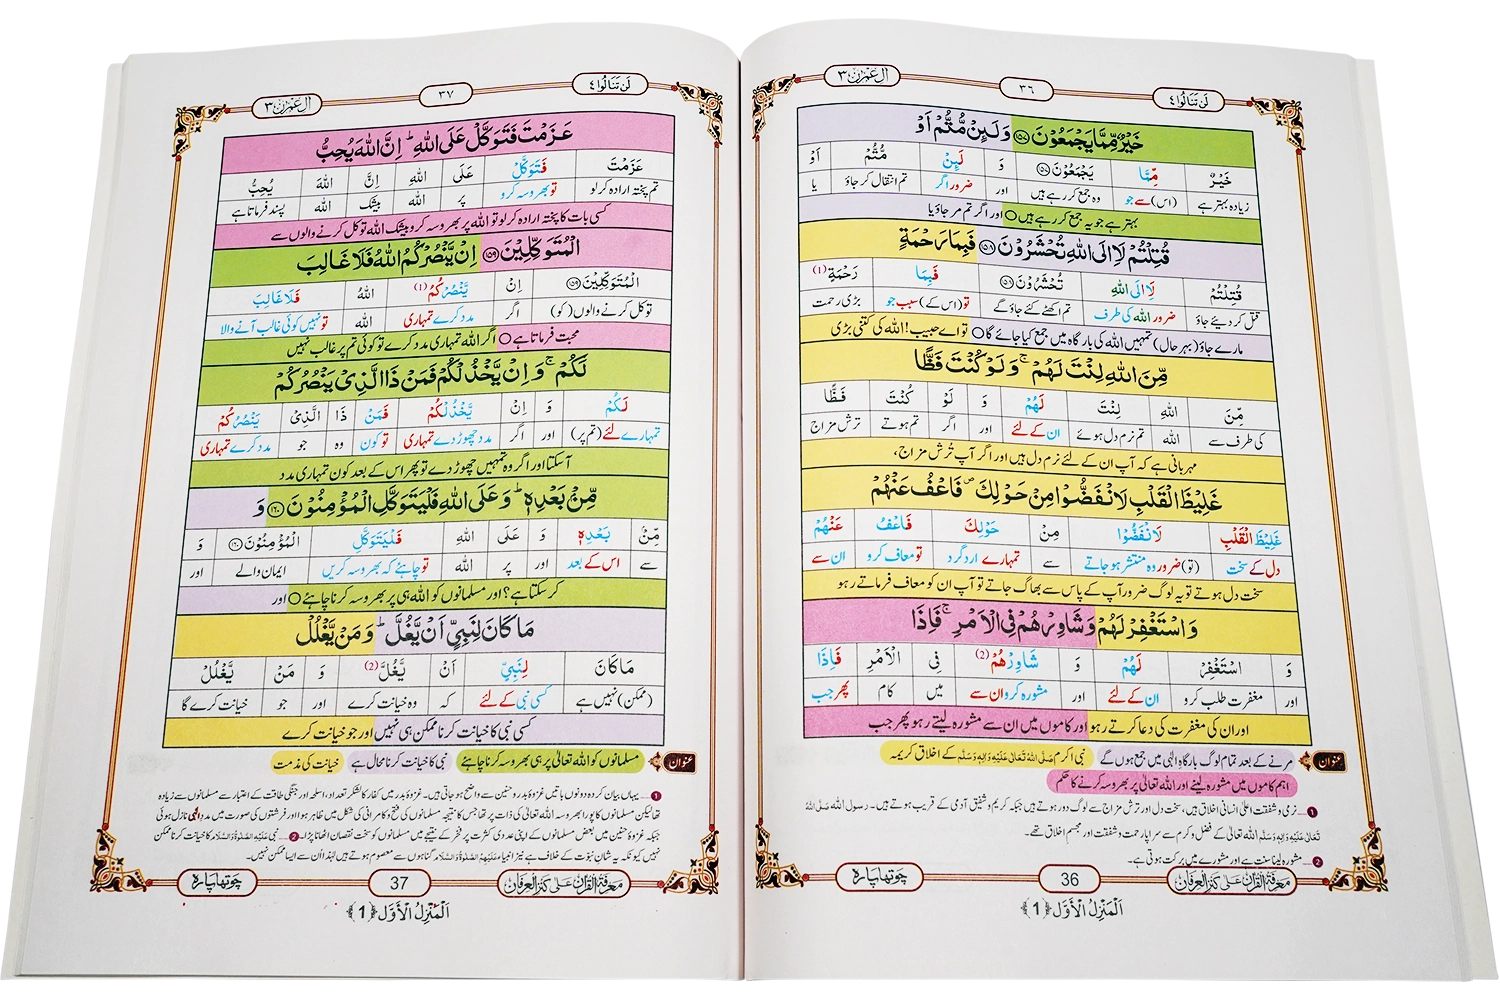 لَنْ تَنَالُوا ٤
٣٦
اٰلِ عِمْرٰن ٣
خَيْرٌ مِّمَّا يَجْمَعُوْنَ ﴿١٥٧﴾ وَ لَىِٕنْ مُّتُّمْ اَوْ
خَيْرٌ مِّمَّا يَجْمَعُوْنَ ﴿١٥٧﴾ وَ لَىِٕنْ مُّتُّمْ اَوْ
زیادہ بہتر ہے (اس) سے جو وہ جمع کر رہے ہیں اور ضرور اگر تم انتقال کر جاؤ یا
بہتر ہے جو یہ جمع کر رہے ہیں ○ اور اگر تم مر جاؤ یا
قُتِلْتُمْ لَاۡاِلَى اللهِ تُحْشَرُوْنَ ﴿١٥٨﴾ فَبِمَا رَحْمَةٍ
قُتِلْتُمْ لَاۡاِلَى اللهِ تُحْشَرُوْنَ ﴿١٥٨﴾ فَبِمَا رَحْمَةٍ (1)
قتل کر دیئے جاؤ ضرور اللہ کی طرف تم اکٹھے کئے جاؤ گے تو (اس کے) سبب جو بڑی رحمت
مارے جاؤ (بہر حال) تمہیں اللہ کی بارگاہ میں جمع کیا جائے گا ○ تو اے حبیب! اللہ کی کتنی بڑی
مِّنَ اللهِ لِنْتَ لَهُمْ ۚ وَ لَوْ كُنْتَ فَظًّا
مِّنَ اللهِ لِنْتَ لَهُمْ وَ لَوْ كُنْتَ فَظًّا
کی طرف سے اللہ تم نرم دل ہوئے ان کے لئے اور اگر تم ہوتے ترش مزاج
مہربانی ہے کہ آپ ان کے لئے نرم دل ہیں اور اگر آپ تُرش مزاج،
غَلِيْظَ الْقَلْبِ لَانْفَضُّوْا مِنْ حَوْلِكَ ۪ فَاعْفُ عَنْهُمْ
غَلِيْظَ الْقَلْبِ لَانْفَضُّوْا مِنْ حَوْلِكَ فَاعْفُ عَنْهُمْ
دل کے سخت (تو) ضرور وہ منتشر ہو جاتے سے تمہارے ارد گرد تو معاف کرو ان سے
سخت دل ہوتے تو یہ لوگ ضرور آپ کے پاس سے بھاگ جاتے تو آپ ان کو معاف فرماتے رہو
وَ اسْتَغْفِرْ لَهُمْ وَ شَاوِرْهُمْ فِى الْاَمْرِ ۚ فَاِذَا
وَ اسْتَغْفِرْ لَهُمْ وَ شَاوِرْهُمْ (2) فِى الْاَمْرِ فَاِذَا
اور مغفرت طلب کرو ان کے لئے اور مشورہ کرو ان سے میں کام پھر جب
اور ان کی مغفرت کی دعا کرتے رہو اور کاموں میں ان سے مشورہ لیتے رہو پھر جب
عنوان مرنے کے بعد تمام لوگ بارگاہِ الٰہی میں جمع ہوں گے نبی اکرم صَلَّی اللہُ تَعَالٰی عَلَیْہِ وَاٰلِہٖ وَسَلَّم کے اخلاق کریمہ
اہم کاموں میں مشورہ لینے اور اللہ تعالٰی پر بھروسہ کرنے کا حکم
1 ... نرمی و شفقت اعلیٰ انسانی اخلاق ہیں، سخت دل اور ترش مزاج سے لوگ دور ہوتے ہیں جبکہ کریم و شفیق آدمی کے قریب ہوتے ہیں۔ رسول اللہ صَلَّی اللہُ
تَعَالٰی عَلَیْہِ وَاٰلِہٖ وَسَلَّم اللہ تعالٰی کے فضل و کرم سے سراپا رحمت و شفقت اور مجسمِ اخلاق تھے۔
2 ... مشورہ لینا سنت ہے اور مشورے میں برکت ہوتی ہے۔
معرفۃ القرآن علٰی کنز العرفان
36
چوتھا پارہ
اَلْمَنْزِلُ الْاَوَّل ﴿1﴾
لَنْ تَنَالُوا ٤
٣٧
اٰلِ عِمْرٰن ٣
عَزَمْتَ فَتَوَكَّلْ عَلَى اللهِ ؕ اِنَّ اللهَ يُحِبُّ
عَزَمْتَ فَتَوَكَّلْ عَلَى اللهِ اِنَّ اللهَ يُحِبُّ
تم پختہ ارادہ کر لو تو بھروسہ کرو پر اللہ بیشک اللہ پسند فرماتا ہے
کسی بات کا پختہ ارادہ کر لو تو اللہ پر بھروسہ کرو بیشک اللہ توکل کرنے والوں سے
الْمُتَوَكِّلِيْنَ ﴿١٥٩﴾ اِنْ يَّنْصُرْكُمُ اللهُ فَلَا غَالِبَ
الْمُتَوَكِّلِيْنَ ﴿١٥٩﴾ اِنْ يَّنْصُرْكُمُ (1) اللهُ فَلَا غَالِبَ
توکل کرنے والوں (کو) اگر مدد کرے تمہاری اللہ تو نہیں کوئی غالب آنے والا
محبت فرماتا ہے ○ اگر اللہ تمہاری مدد کرے تو کوئی تم پر غالب نہیں
لَكُمْ ۚ وَ اِنْ يَّخْذُلْكُمْ فَمَنْ ذَا الَّذِىْ يَنْصُرُكُمْ
لَكُمْ وَ اِنْ يَّخْذُلْكُمْ فَمَنْ ذَا الَّذِىْ يَنْصُرُكُمْ
تمہارے لئے (تم پر) اور اگر مدد چھوڑ دے تمہاری تو کون وہ جو مدد کرے تمہاری
آ سکتا اور اگر وہ تمہیں چھوڑ دے تو پھر اس کے بعد کون تمہاری مدد
مِّنْۢ بَعْدِهٖ ؕ وَ عَلَى اللهِ فَلْيَتَوَكَّلِ الْمُؤْمِنُوْنَ ﴿١٦٠﴾ وَ
مِّنْۢ بَعْدِهٖ وَ عَلَى اللهِ فَلْيَتَوَكَّلِ الْمُؤْمِنُوْنَ ﴿١٦٠﴾ وَ
سے اس کے بعد اور پر اللہ تو چاہئے کہ بھروسہ کریں ایمان والے اور
کر سکتا ہے؟ اور مسلمانوں کو اللہ ہی پر بھروسہ کرنا چاہئے ○ اور
مَا كَانَ لِنَبِيٍّ اَنْ يَّغُلَّ ؕ وَ مَنْ يَّغْلُلْ
مَا كَانَ لِنَبِيٍّ اَنْ يَّغُلَّ (2) وَ مَنْ يَّغْلُلْ
(ممکن) نہیں ہے کسی نبی کے لئے کہ وہ خیانت کرے اور جو خیانت کرے گا
کسی نبی کا خیانت کرنا ممکن ہی نہیں اور جو خیانت کرے
عنوان مسلمانوں کو اللہ تعالٰی پر ہی بھروسہ کرنا چاہئے نبی کا خیانت کرنا محال ہے خیانت کی مذمت
1 ... یہاں بیان کردہ دونوں باتیں غزوۂ بدر و حنین سے واضح ہو جاتی ہیں۔ غزوۂ بدر میں کفار کا لشکر تعداد، اسلحہ اور جنگی طاقت کے اعتبار سے مسلمانوں سے زیادہ
تھا لیکن مسلمانوں کا پورا بھروسہ اللہ تعالٰی کی ذات پر تھا جس کا نتیجہ مسلمانوں کی فتح و کامرانی کی شکل میں ظاہر ہوا اور فرشتوں کی صورت میں مددِ الٰہی نازل ہوئی
جبکہ غزوۂ حنین میں بعض مسلمانوں کے اپنی عددی کثرت پر فخر کے نتیجے میں مسلمانوں کو سخت نقصان اٹھانا پڑا۔ 2 ... نبی عَلَیْہِ الصَّلٰوۃُ وَالسَّلَام کا خیانت کرنا ممکن
نہیں کیونکہ یہ شانِ نبوت کے خلاف ہے نیز انبیاء عَلَیْہِمُ الصَّلٰوۃُ وَالسَّلَام گناہوں سے معصوم ہوتے ہیں لہٰذا ان سے ایسا ممکن نہیں۔
معرفۃ القرآن علٰی کنز العرفان
37
چوتھا پارہ
اَلْمَنْزِلُ الْاَوَّل ﴿1﴾